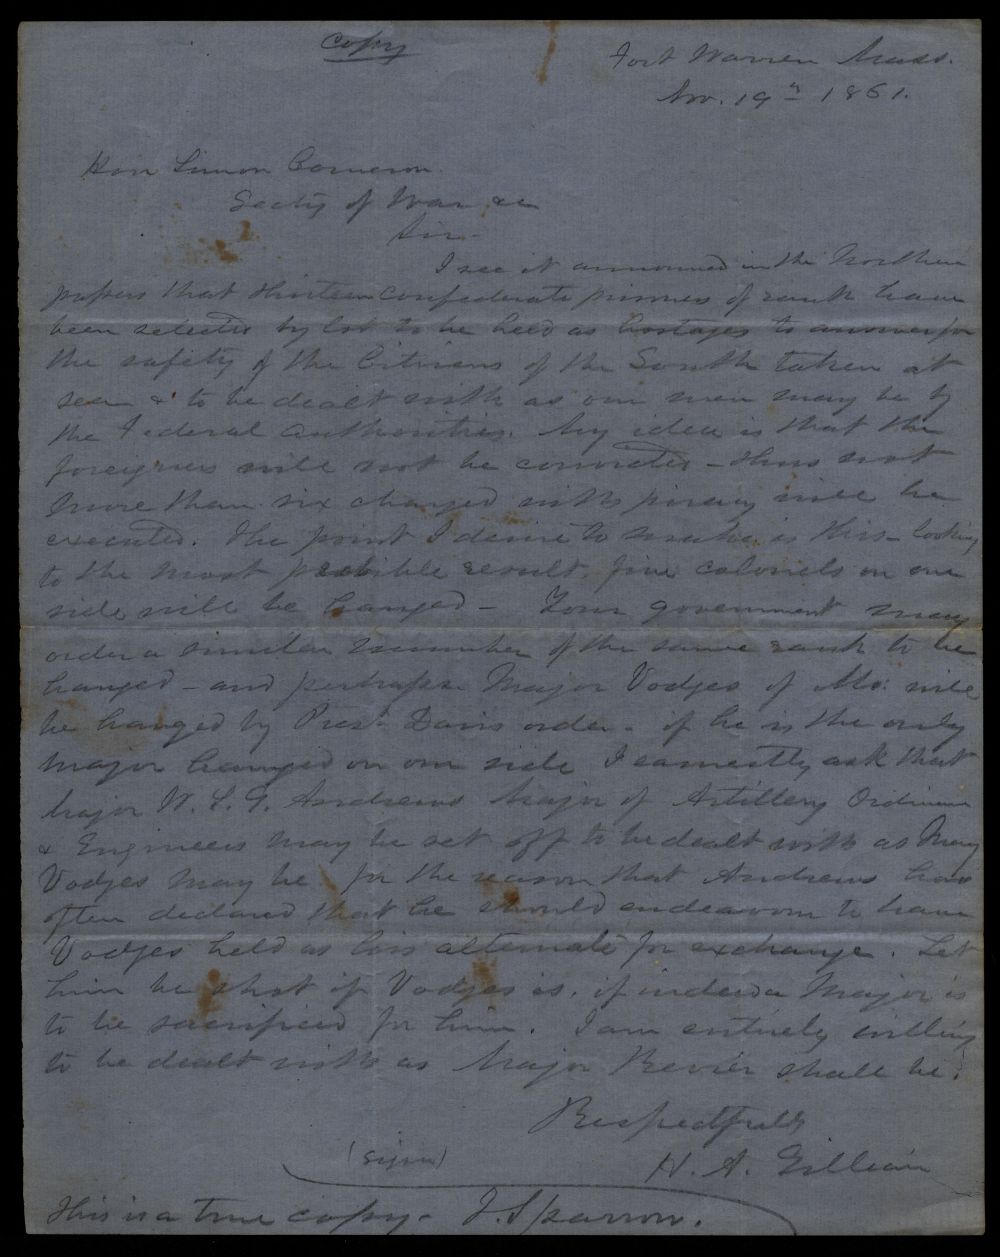 copy
Fort Warren Mass.
Nov. 19th 1861.
Hon Simon Cameron.
Secty of War &c
Sir-
I see it announced in the Northern
papers that thirteen confederate prisoners of rank have
been selected by lot to be held as hostages to answer for
the safety of the Citizens of the South taken at
sea & to be dealt with as our men may be by
the Federal authorities. My idea is that the
foreigners will not be convicted - thus not
more than six charged with piracy will be
executed. The point I desire to make is this - looking
to the most possible result, five colonels on one
side will be hanged - Your government may
order a similar number of the same rank to be
hanged - and perhaps Major Vodges of Mo: will
be hanged by Pres. Davis order - if he is the only
major hanged on our side I earnestly ask that
Major W. S. G. Andrews Major of Artillery Ordinance
& Engineers may be set off to be dealt with as Maj
Vodges may be for the reason that Andrews has
often declared that he should endeavour to have
Vodges held as his alternate for exchange. Let
him be shot if Vodges is, if indeed a Major is
to be sacrificed for him. I am entirely willing
to be dealt with as Major Revier shall be.
Respectfully
(sign) H. A. Gilliam
This is a true copy - T. Sparrow.